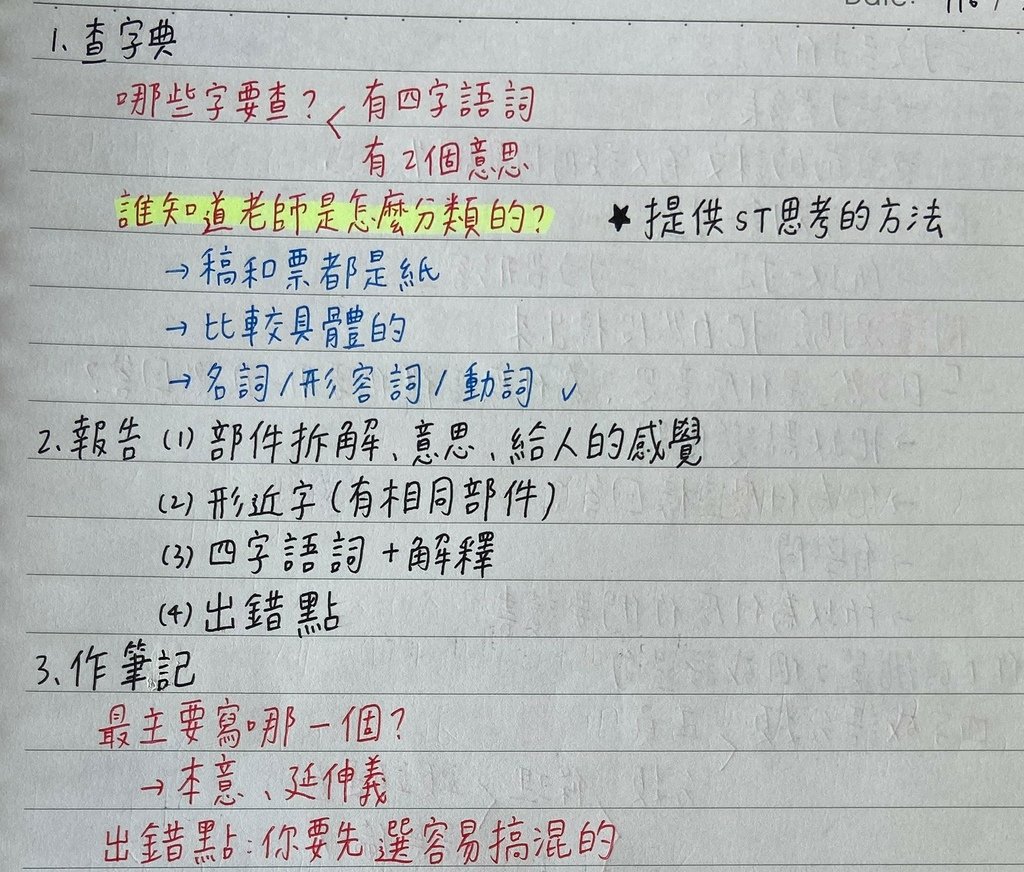 1、查字典
哪些字要查？< 有四字語詞
有2個意思
誰知道老師是怎麼分類的？ ★提供ST思考的方法
→ 稿和票都是紙
→ 比較具體的
→ 名詞/形容詞/動詞 ✓
2、報告 (1) 部件拆解、意思、給人的感覺
(2) 形近字(有相同部件)
(3) 四字語詞+解釋
(4) 出錯點
3、作筆記
最主要寫哪一個？
→ 本意、延伸義
出錯點：你要先選容易搞混的